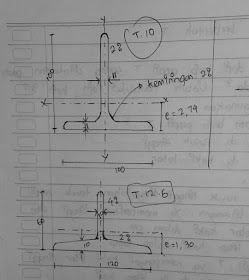 Y
T.10
2%
11
kemiringan 2%
100
X
X
e = 2,74
Y
100
T.12.6
4%
60
10
2%
e = 1,30
120